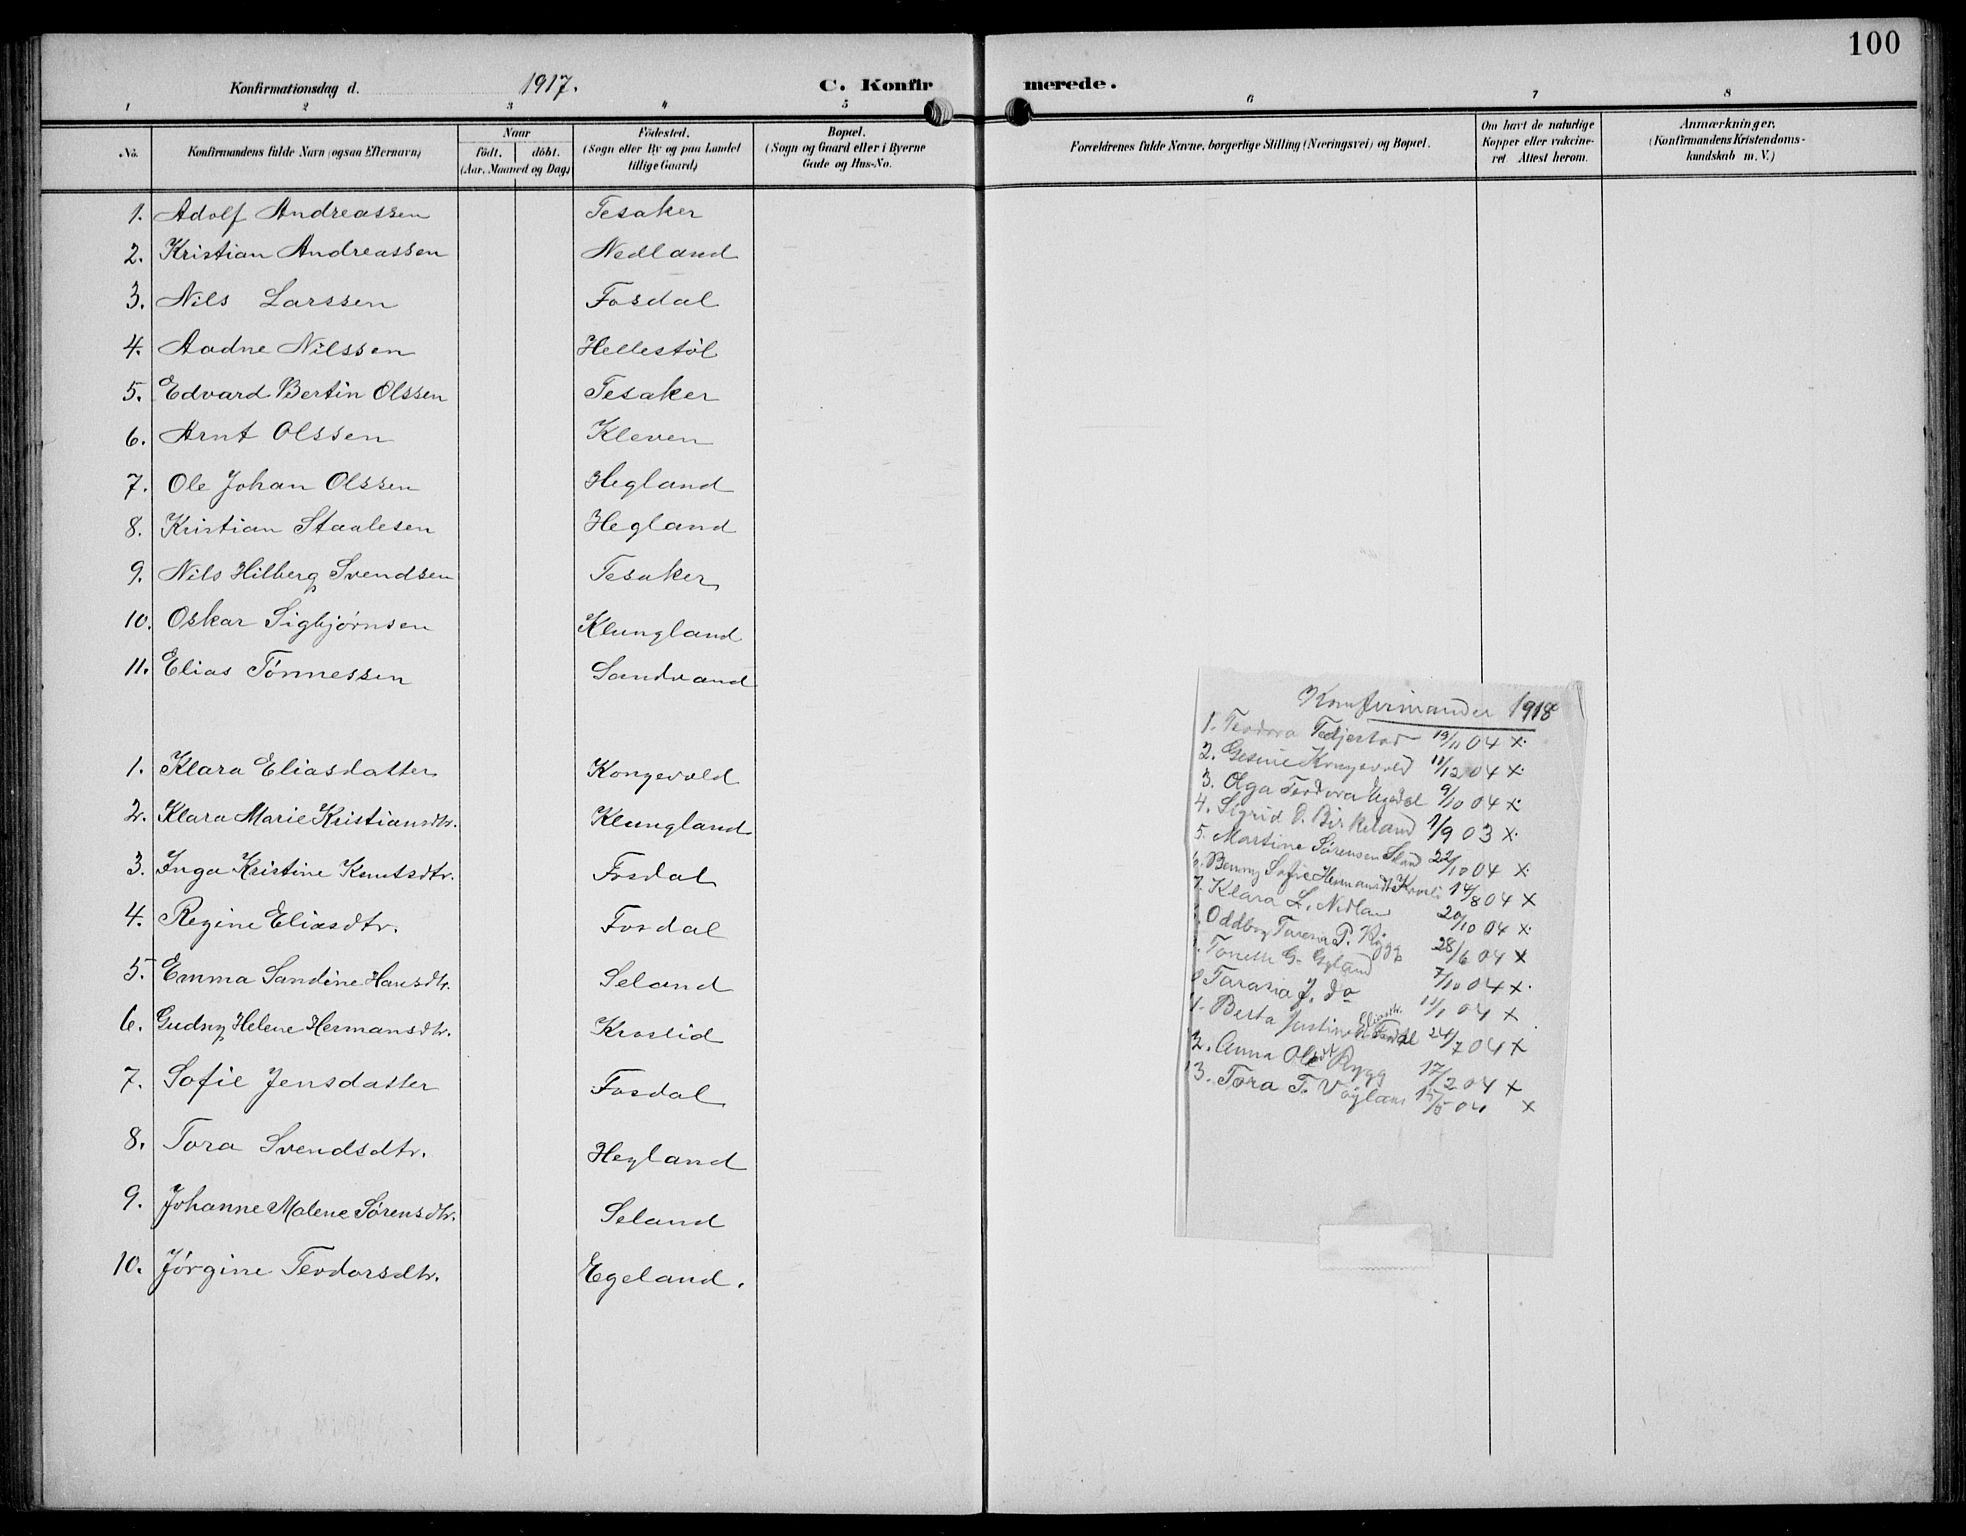 100
Konfirmationsdag d. 1917.
C. Konfirmerede.
1 2 3 4 5 6 7 8
No.
Konfirmandens fulde Navn (ogsaa Efternavn)
Naar
födt. döbt.
(Aar, Maaned og Dag)
Födested.
(Sogn eller By og paa Landet
tillige Gaard)
Bopæl.
(Sogn og Gaard eller i Byerne
Gade og Hus-No.
Forældrenes fulde Navne, borgerlige Stilling (Næringsvei) og Bopæl.
Om havt de naturlige
Kopper eller vakcine-
ret. Attest herom.
Anmærkninger.
(Konfirmandens Kristendoms-
kundskab m. V.)
1. Adolf Andreassen Tesaker
2. Kristian Andreassen Nedland
3. Nils Larssen Fosdal
4. Aadne Nilssen Hellestöl
5. Edvard Bertin Olssen Tesaker
6. Arnt Olssen Kleven
7. Ole Johan Olssen Hegland
8. Kristian Staalesen Hegland
9. Nils Hilberg Svendsen Tesaker
10. Oskar Sigbjørnsen Klungland
11. Elias Tønnessen Sandvand
1. Klara Eliasdatter Kongevold
2. Klara Marie Kristiansdtr. Klungland
3. Inga Kristine Knutsdtr. Fosdal
4. Regine Eliasdtr. Fosdal
5. Emma Sandine Hansdtr. Seland
6. Gudny Helene Hermansdtr. Kroslid
7. Sofie Jensdatter Fosdal
8. Tora Svendsdtr. Hegland
9. Johanne Malene Sørensdtr. Seland
10. Jørgine Teodorsdtr. Egeland.
Konfirmander 1918
1. Teodora 13/11 04 x
2. Gesine Kongevold 11/12 04 x
3. Olga Teodora Egedal 9/10 04 x
4. Sigrid O. Birkeland 1/9 03 x
5. Martine Sørensen Sland 22/10 04 x
6. Benny Sofie Hermansdt Krosli 14/8 04 x
7. Klara L. Nedlan 20/10 04 x
Oddbog Tarena P. Rygg 28/6 04 x
Toneth G. Egland 7/10 04 x
Tarasia J. do 11/1 04 x
Berta Justine Eliasdtr. Fosdal 24/7 04 x
2. Anna Olsdt Rygg 17/2 04 x
13. Tora T. Vøylan 15/5 04 x